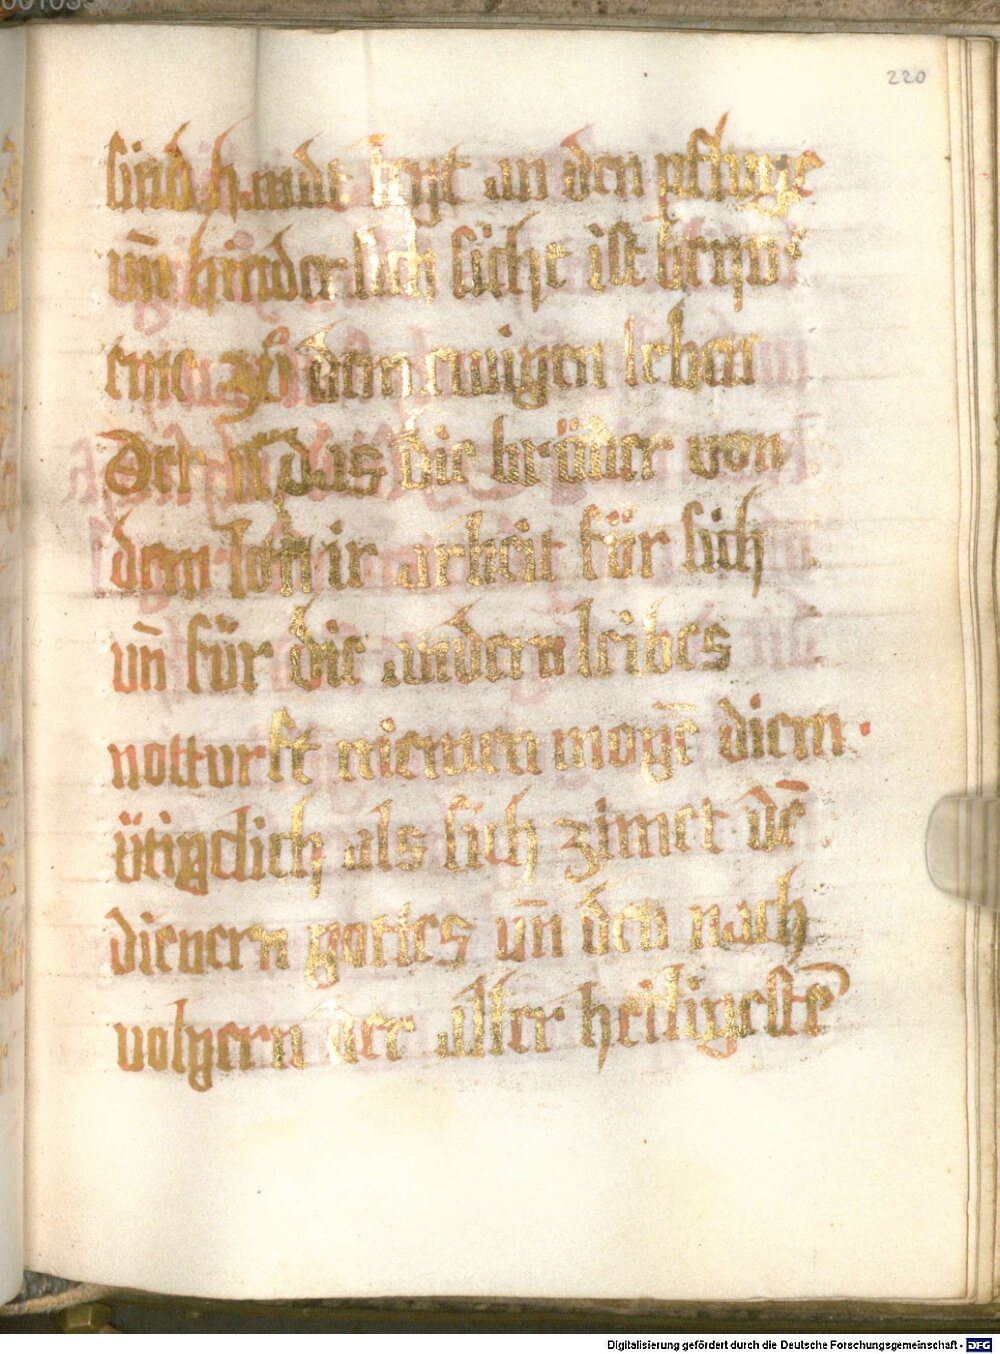 220
sind hande leyt an den pfluge
uñ hinder sich sicht ist beq̈v
eme zů dem ewigen leben
Der iij das die brüder von
dem lon ir arbait für sich
uñ für die andern leibes
notturft niemen mogē diem
ütigclich als sich zimet dē
dienern gottes uñ den nach
volgern der aller heiligestē
Digitalisierung gefördert durch die Deutsche Forschungsgemeinschaft - DFG